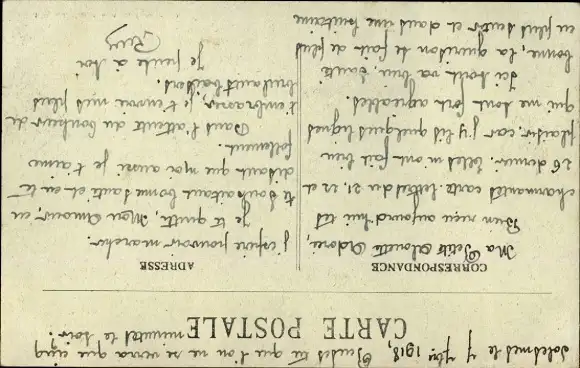 Solesmes le 7 7bre 1918, Pensez tu que l'on ne se verra que cinq
minutes le soir.
CARTE POSTALE
CORRESPONDANCE
Ma Petite Alouette Adorée,
Bien reçu aujourd'hui tes
charmantes carte-lettres du 21, 22 et
26 dernier. Elles m'ont fait bien
plaisir, car j'y lis quelques lignes
qui me sont fort agréables.
Ici tout va bien, santé
bonne, la guérison se fait de plus
en plus sentir et dans une huitaine
ADRESSE
j'espère pouvoir marcher.
Je te quitte, Mon Amour, en
te souhaitant bonne santé et en te
disant que moi aussi je t'aime
follement.
Dans l'attente du bonheur de
t'embrasser, je t'envoie mes plus
brulants baisers.
Je pense à toi